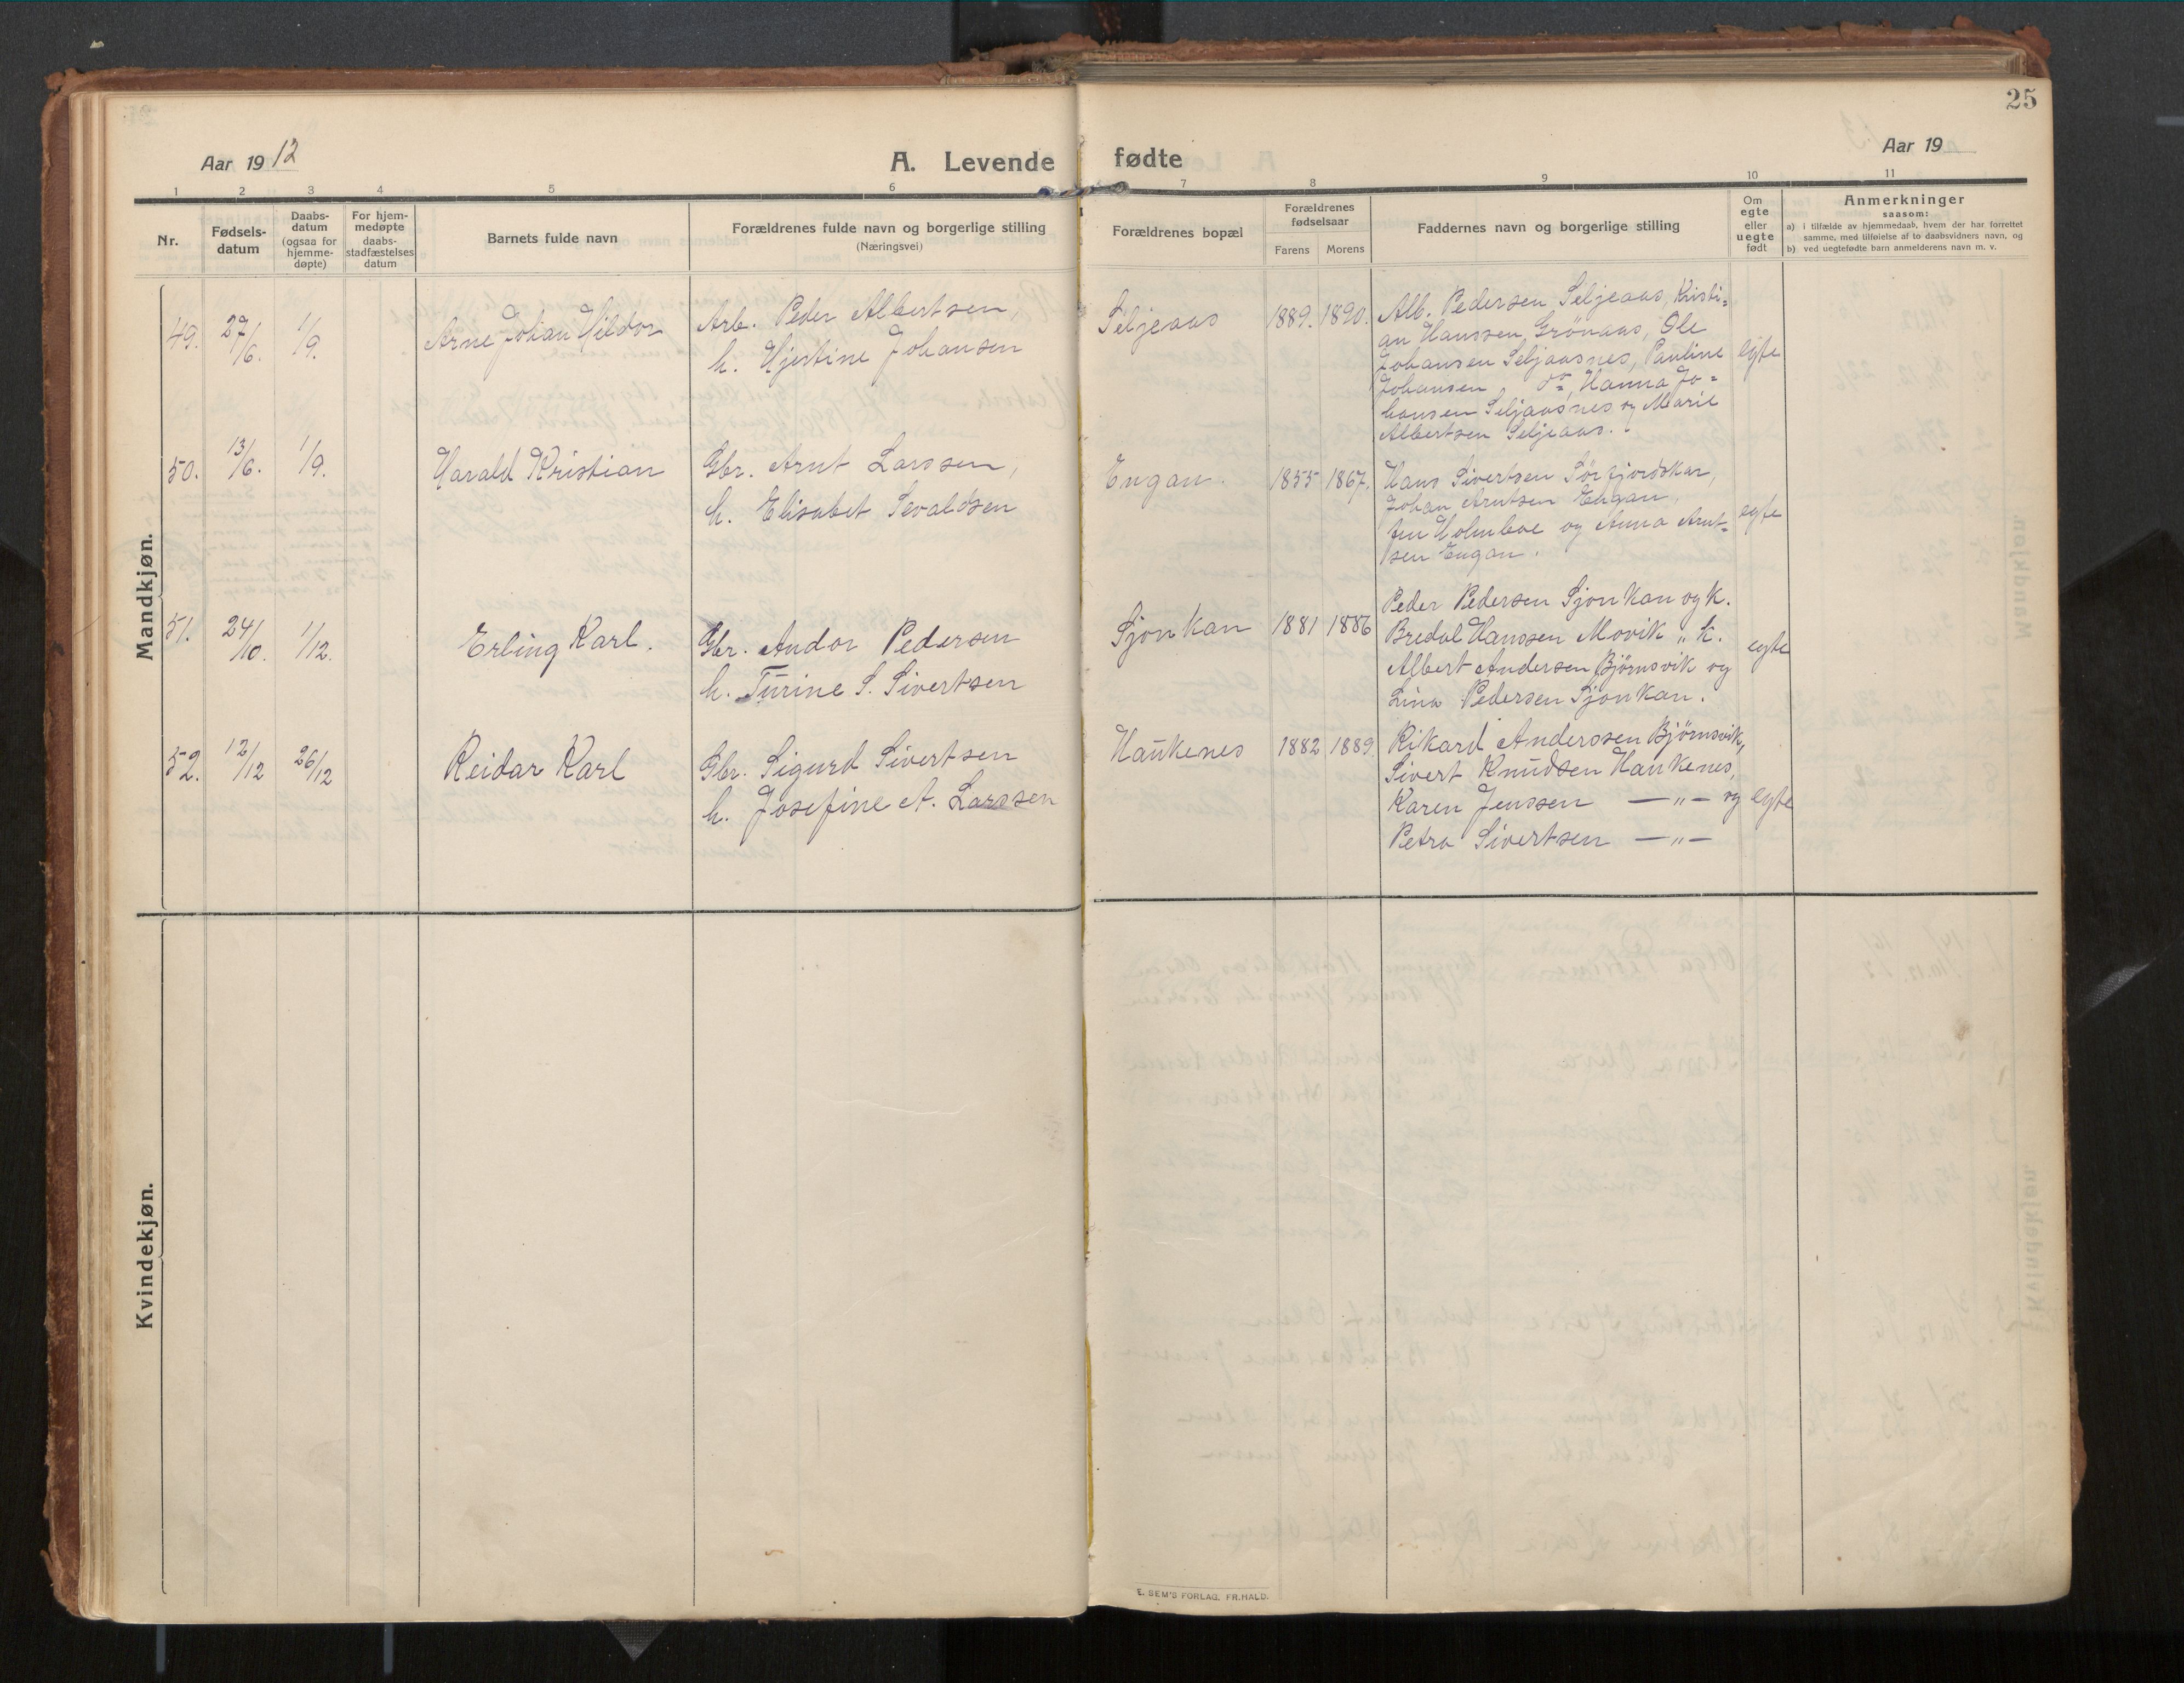 25
Aar 1912
A. Levende fødte
Aar 19
1 2 3 4 5 6 7 8 9 10 11
Nr.
Fødsels-
datum
Daabs-
datum
(ogsaa for
hjemme-
døpte)
For hjem-
medøpte
daabs-
stadfæstelses
datum
Barnets fulde navn
Forældrenes fulde navn og borgerlige stilling
(Næringsvei)
Forældrenes bopæl
Forældrenes
fødselsaar
Farens Morens
Faddernes navn og borgerlige stilling
Om
egte
eller
uegte
født
Anmerkninger
saasom:
a) i tilfælde av hjemmedaab, hvem der har forrettet
samme, med tilføielse af to daabsvidners navn, og
b) ved uegtefødte barn anmelderens navn m. v.
Mandkjøn.
49. 27/6. 1/9. Arne Johan Hildor
Arb. Peder Albertsen,
h. Hjertine Johansen
Seljeaas 1889. 1890.
Alb. Pedersen Seljeaas, Kristi=
an Hanssen Grönaas, Ole
Johansen Seljaasnes, Pauline
Johansen do, Hanna Jo=
hansen Seljaasnes og Marie
Albertsen Seljeaas.
egte
50. 13/6. 1/9. Harald Kristian
Gbr. Arnt Larssen,
h. Elisabet Sevaldsen
Engan. 1855 1867.
Hans Sivertsen Sörfjordskar,
Johan Arntsen Engan,
Jen Holmboe og Anna Arnt=
sen Engan.
egte
51. 24/10. 1/12. Erling Karl.
Gbr. Andor Pedersen
h. Turine S. Sivertsen
Sjonkan 1881 1886
Peder Pedersen Sjonkan og k.
Bredal Hanssen Movik „ k.
Albert Andersen Bjørnsvik og
Lina Pedersen Sjonkan.
egte
52. 12/12 26/12 Reidar Karl
Gbr. Sigurd Sivertsen
h. Josefine A. Larssen
Haukenes 1882 1889
Rikard Anderssen Bjørnsvik,
Sivert Knudsen Haukenes,
Karen Jenssen —„— og
Petra Sivertsen —„—
egte
Kvindekjøn.
E. SEM'S FORLAG, FR.HALD.